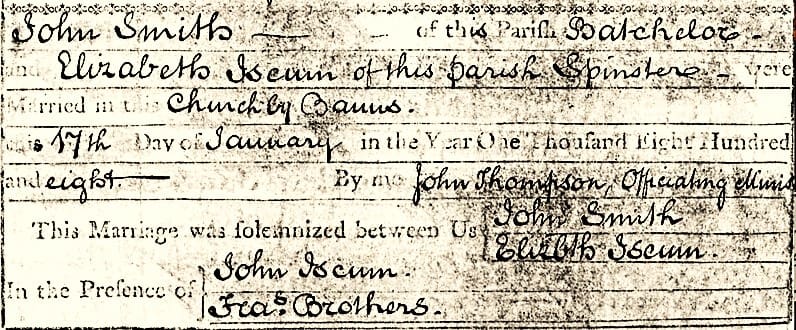 John Smith — — of this Parish Batchelor -
and Elizabeth Iscum of this parish Spinster - were
Married in this Church by Banns.
this 17th Day of January in the Year One Thousand Eight Hundred
and eight. — By me John Thompson, Officiating Minis
This Marriage was solemnized between Us John Smith
Elizbth Iscum.
In the Presence of John Iscum.
Fras Brothers.